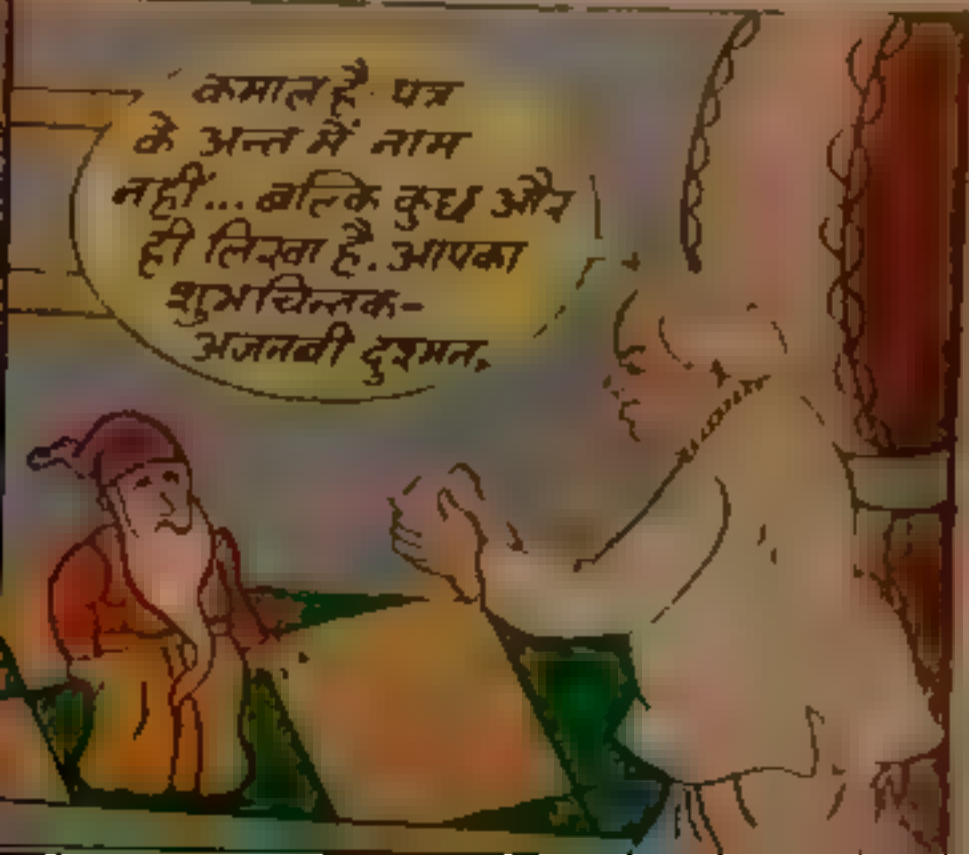 कमाल है. पत्र
के अन्त में नाम
नहीं... बल्कि कुछ और
ही लिखा है. आपका
शुभचिन्तक-
अजनबी दुश्मन.